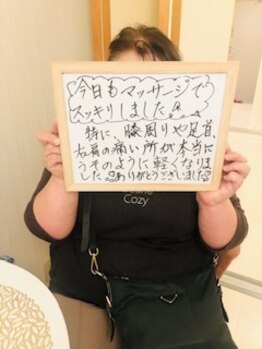 今日もマッサージで
スッキリしました!!
特に、膝周りや足首、
右肩の痛い所が本当に
うそのように軽くなりま
した!!ありがとうございました!!
Cozy